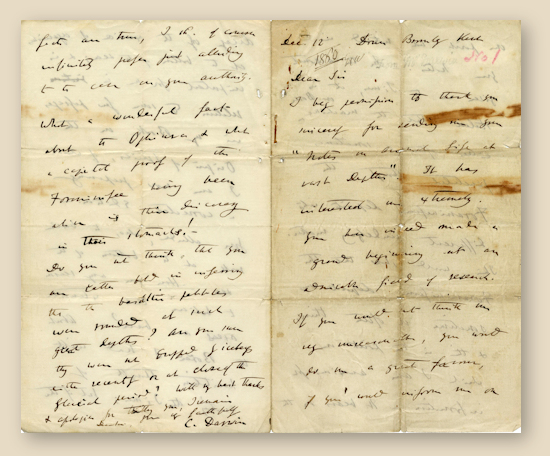 Dec. 12 Down Bromley Kent
No 1
Dear Sir
I beg permission to thank you
sincerely for sending me your
"Notes on animal life at
vast depths" It has
interested me extremely.
You have indeed made a
grand beginning at an
admirable field of research.
If you would not think me
very unreasonable, you would
do me a great favour,
if you would inform me on
facts are true, I sh. of course
infinitely prefer just alluding
to the case on your authority.
What a wonderful fact
about the Ophiuras, & what
a capital proof of the
Foraminifera having been
alive is their discovery
in their stomachs. –
Do you not think that you
are rather bold in inferring
that the basaltic pebbles
were rounded at such
great depths? are you sure
they were not dropped by icebergs
either recently or at close of the
Glacial period? With my best thanks
& apologies for troubling you, I remain
Yours faithfully
C. Darwin